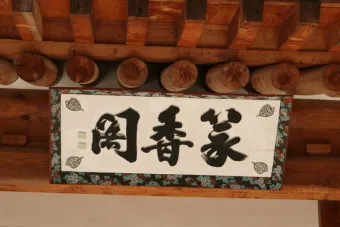 篆香閣